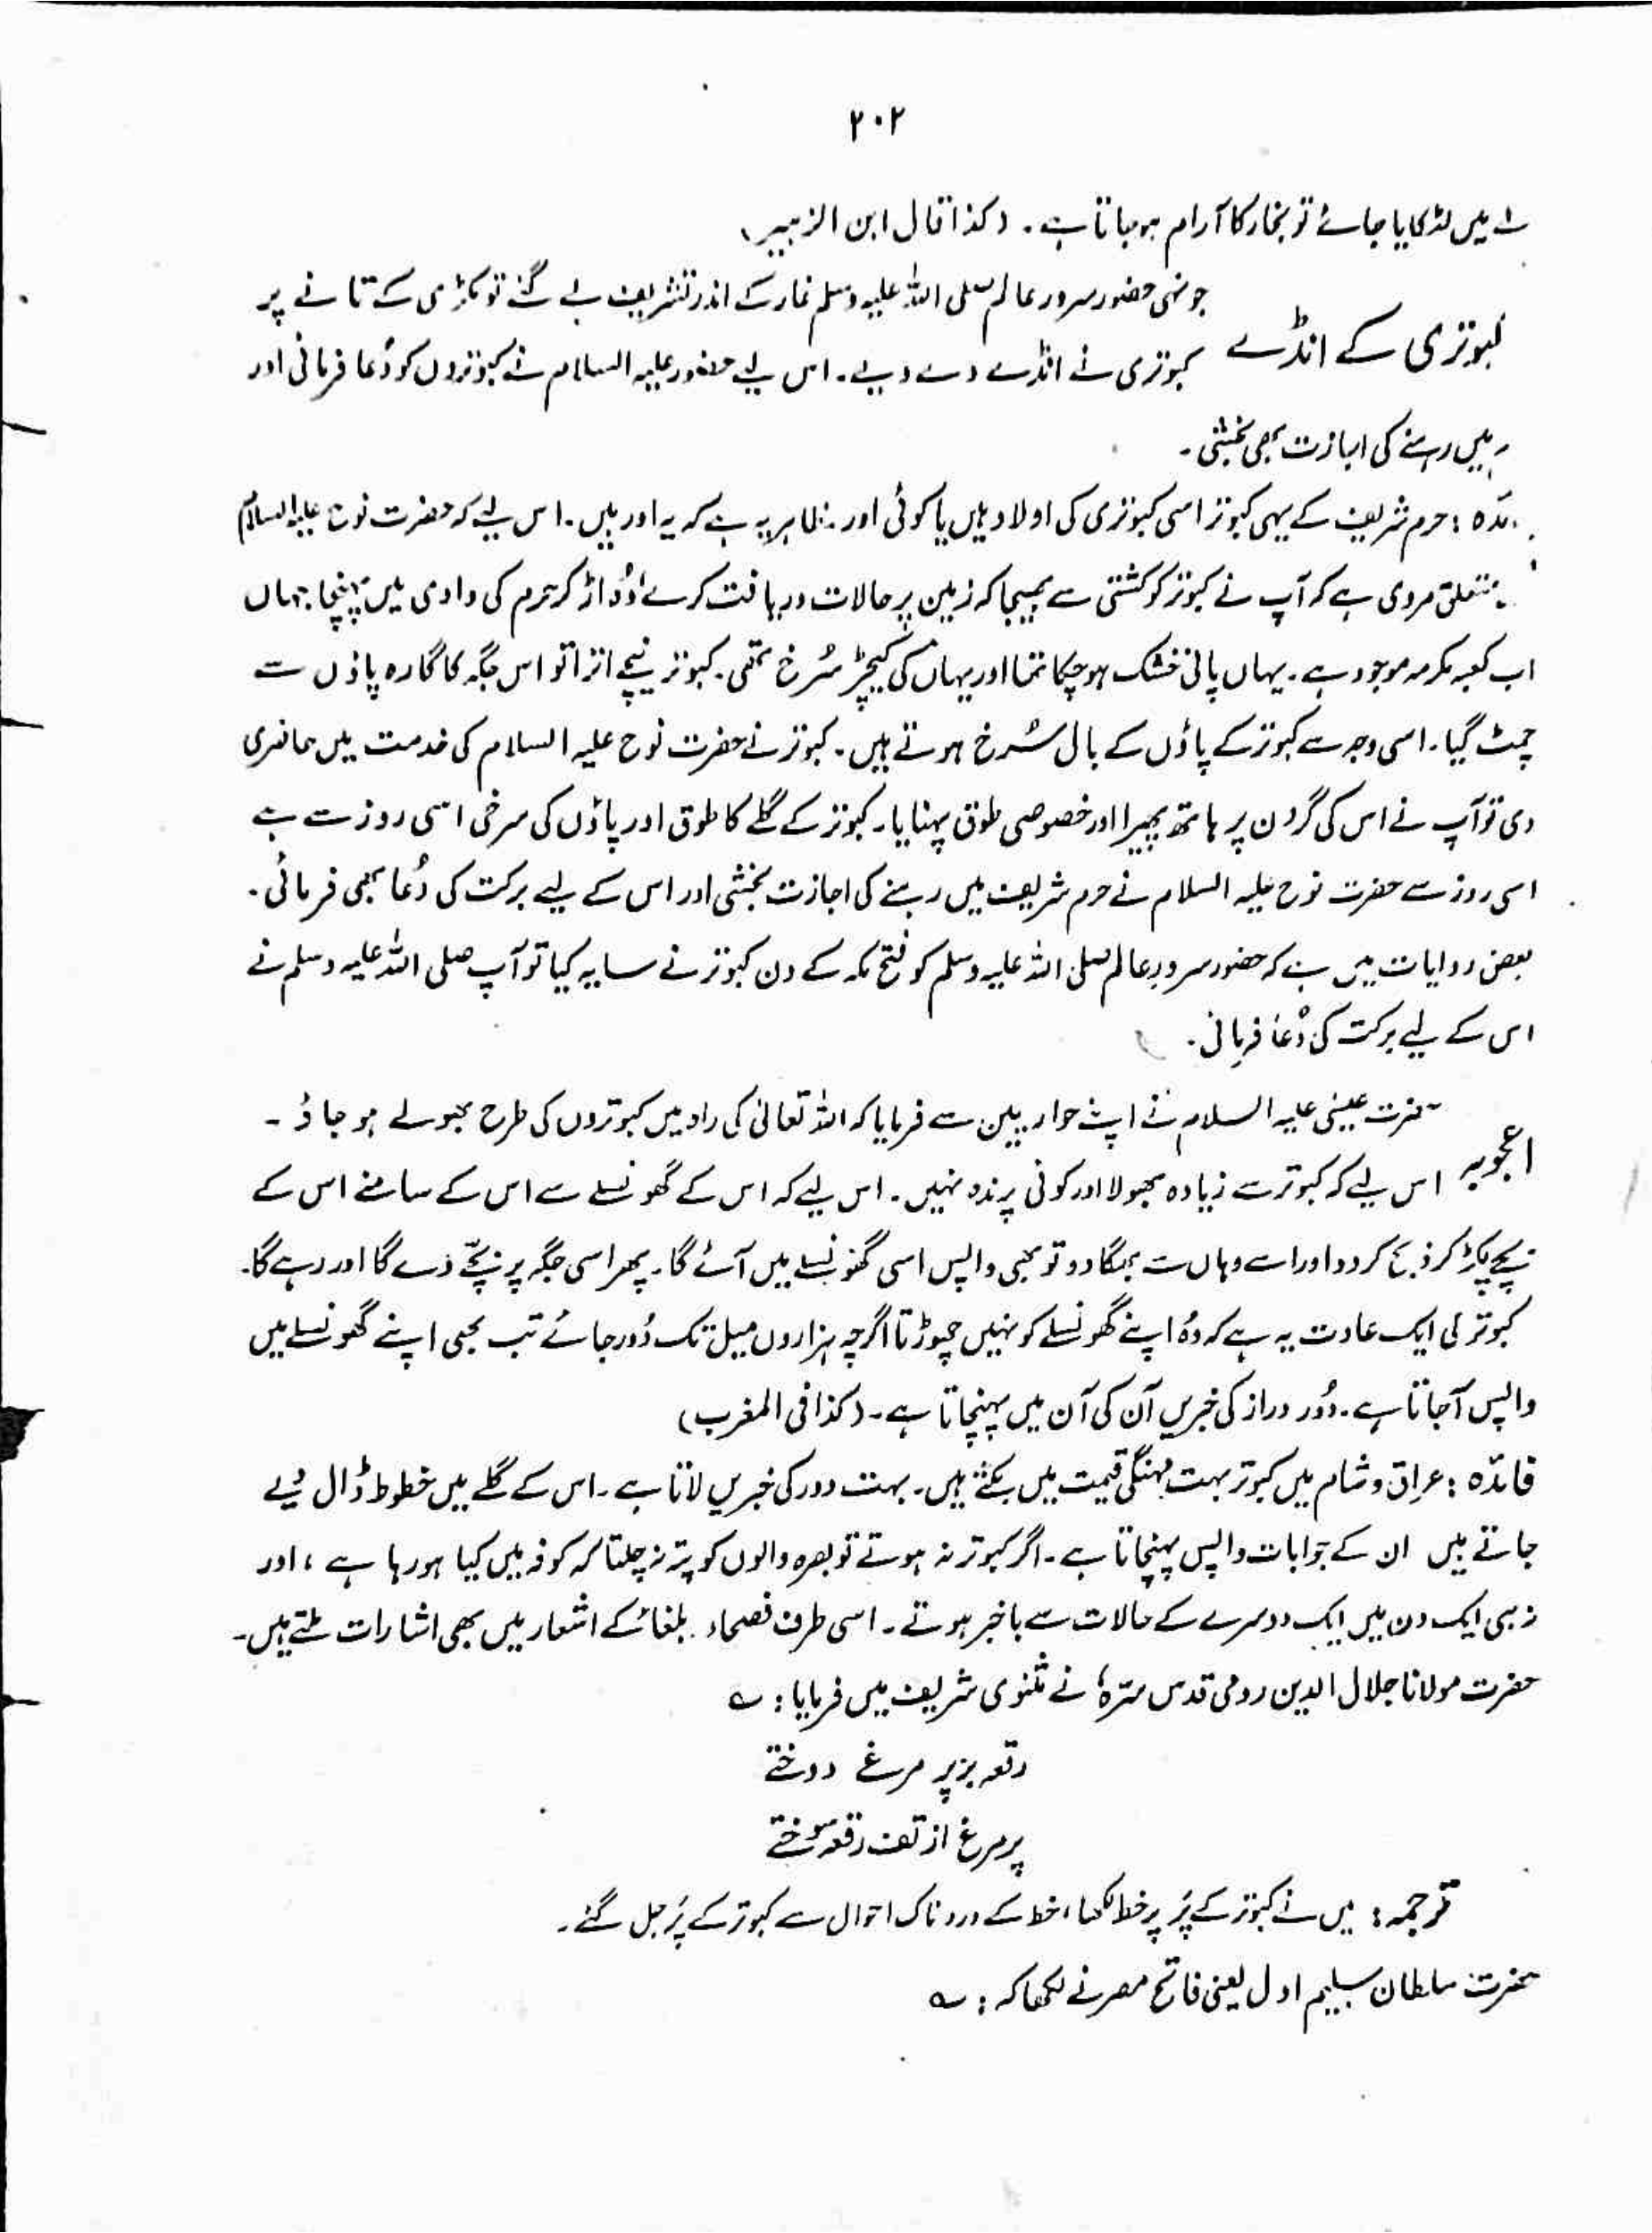 ۲۰۲
میں لٹکایا جائے تو بخار کا آرام ہو جاتا ہے۔ (کذا قال ابن الزبیر)
جونہی حضور سرور عالم صلی اللہ علیہ وسلم غار کے اندر تشریف لے گئے تو مکڑی کے تانے پر
کبوتری کے انڈے
کبوتری نے انڈے دے دیے۔ اس لیے حضور علیہ السلام نے کبوتروں کو دُعا فرمائی اور
میں رہنے کی اجازت بھی بخشی۔
حرم شریف کے یہی کبوتر اسی کبوتری کی اولاد ہیں یا کوئی اور۔ ظاہر یہ ہے کہ یہ اور ہیں۔ اس لیے کہ حضرت نوح علیہ السلام
متعلق مروی ہے کہ آپ نے کبوتر کو کشتی سے بھیجا کہ زمین پر حالات دریافت کرے وُہ اڑ کر حرم کی وادی میں پہنچا جہاں
اب کعبہ مکرمہ موجود ہے۔ یہاں پانی خشک ہو چکا تھا اور یہاں کی کیچڑ سُرخ تھی۔ کبوتر نیچے اترا تو اس جگہ کا گارہ پاؤں سے
چمٹ گیا۔ اسی وجہ سے کبوتر کے پاؤں کے بال سُرخ ہوتے ہیں۔ کبوتر نے حضرت نوح علیہ السلام کی خدمت میں حاضری
دی تو آپ نے اس کی گردن پر ہاتھ پھیرا اور خصوصی طوق پہنایا۔ کبوتر کے گلے کا طوق اور پاؤں کی سرخی اسی روز سے ہے
اسی روز سے حضرت نوح علیہ السلام نے حرم شریف میں رہنے کی اجازت بخشی اور اس کے لیے برکت کی دُعا بھی فرمائی۔
بعض روایات میں ہے کہ حضور سرورِ عالم صلی اللہ علیہ وسلم کو فتح مکہ کے دن کبوتر نے سایہ کیا تو آپ صلی اللہ علیہ وسلم نے
اس کے لیے برکت کی دُعا فرمائی۔
حضرت عیسٰی علیہ السلام نے اپنے حواریین سے فرمایا کہ اللہ تعالیٰ کی راہ میں کبوتروں کی طرح بھولے ہو جاؤ۔
اعجوبہ
اس لیے کہ کبوتر سے زیادہ بھولا اور کوئی پرندہ نہیں۔ اس لیے کہ اس کے گھونسلے سے اس کے سامنے اس کے
بچے پکڑ کر ذبح کر دو اور اسے وہاں سے بھگا دو تو بھی واپس اسی گھونسلے میں آئے گا۔ پھر اسی جگہ پر بچّے دے گا اور رہے گا۔
کبوتر کی ایک عادت یہ ہے کہ وُہ اپنے گھونسلے کو نہیں چھوڑتا اگرچہ ہزاروں میل تک دُور جائے تب بھی اپنے گھونسلے میں
واپس آ جاتا ہے۔ دُور دراز کی خبریں آن کی آن میں پہنچاتا ہے۔ (کذا فی المغرب)
فائدہ : عراق و شام میں کبوتر بہت مہنگی قیمت میں بکتے ہیں۔ بہت دور کی خبریں لاتا ہے۔ اس کے گلے میں خطوط ڈال دیے
جاتے ہیں ان کے جوابات واپس پہنچاتا ہے۔ اگر کبوتر نہ ہوتے تو بصرہ والوں کو پتہ نہ چلتا کہ کوفہ میں کیا ہو رہا ہے ، اور
نہ ہی ایک دن میں ایک دوسرے کے حالات سے باخبر ہوتے۔ اسی طرف فصحاء بلغاء کے اشعار میں بھی اشارات ملتے ہیں۔
حضرت مولانا جلال الدین رومی قدس سترہٗ نے مثنوی شریف میں فرمایا : ؎
رقعہ بر پر مرغ دوختے
پر مرغ از تف رقعہ سوختے
ترجمہ : میں نے کبوتر کے پَر پر خط لکھا، خط کے دردناک احوال سے کبوتر کے پَر جل گئے۔
حضرت سلطان سلیم اول یعنی فاتح مصر نے لکھا کہ : ؎